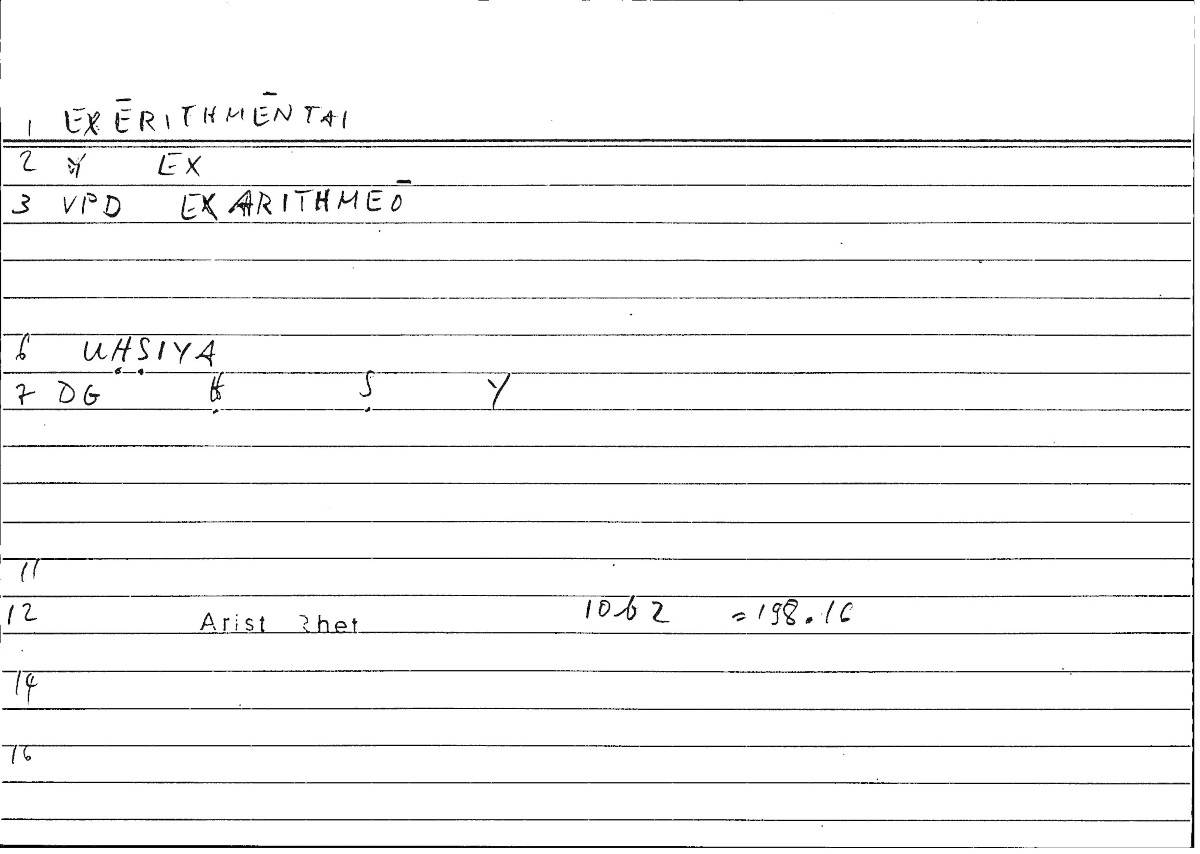 1 EXĒRITHMĒNTAI
2 Y EX
3 VPD EXARITHMEŌ
6 UḤṢIYA
7 DG Ḥ Ṣ Y
11
12 Arist Rhet 10b2 =198.16
14
16